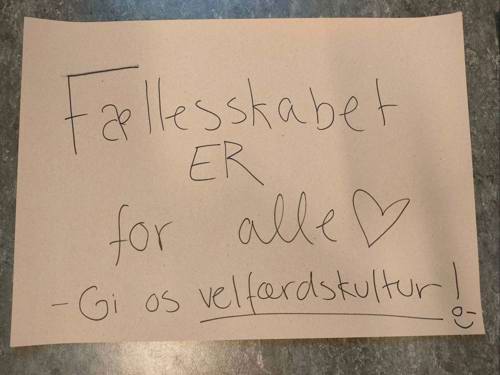 Fællesskabet
ER
for alle ♡
- Gi os velfærdskultur!